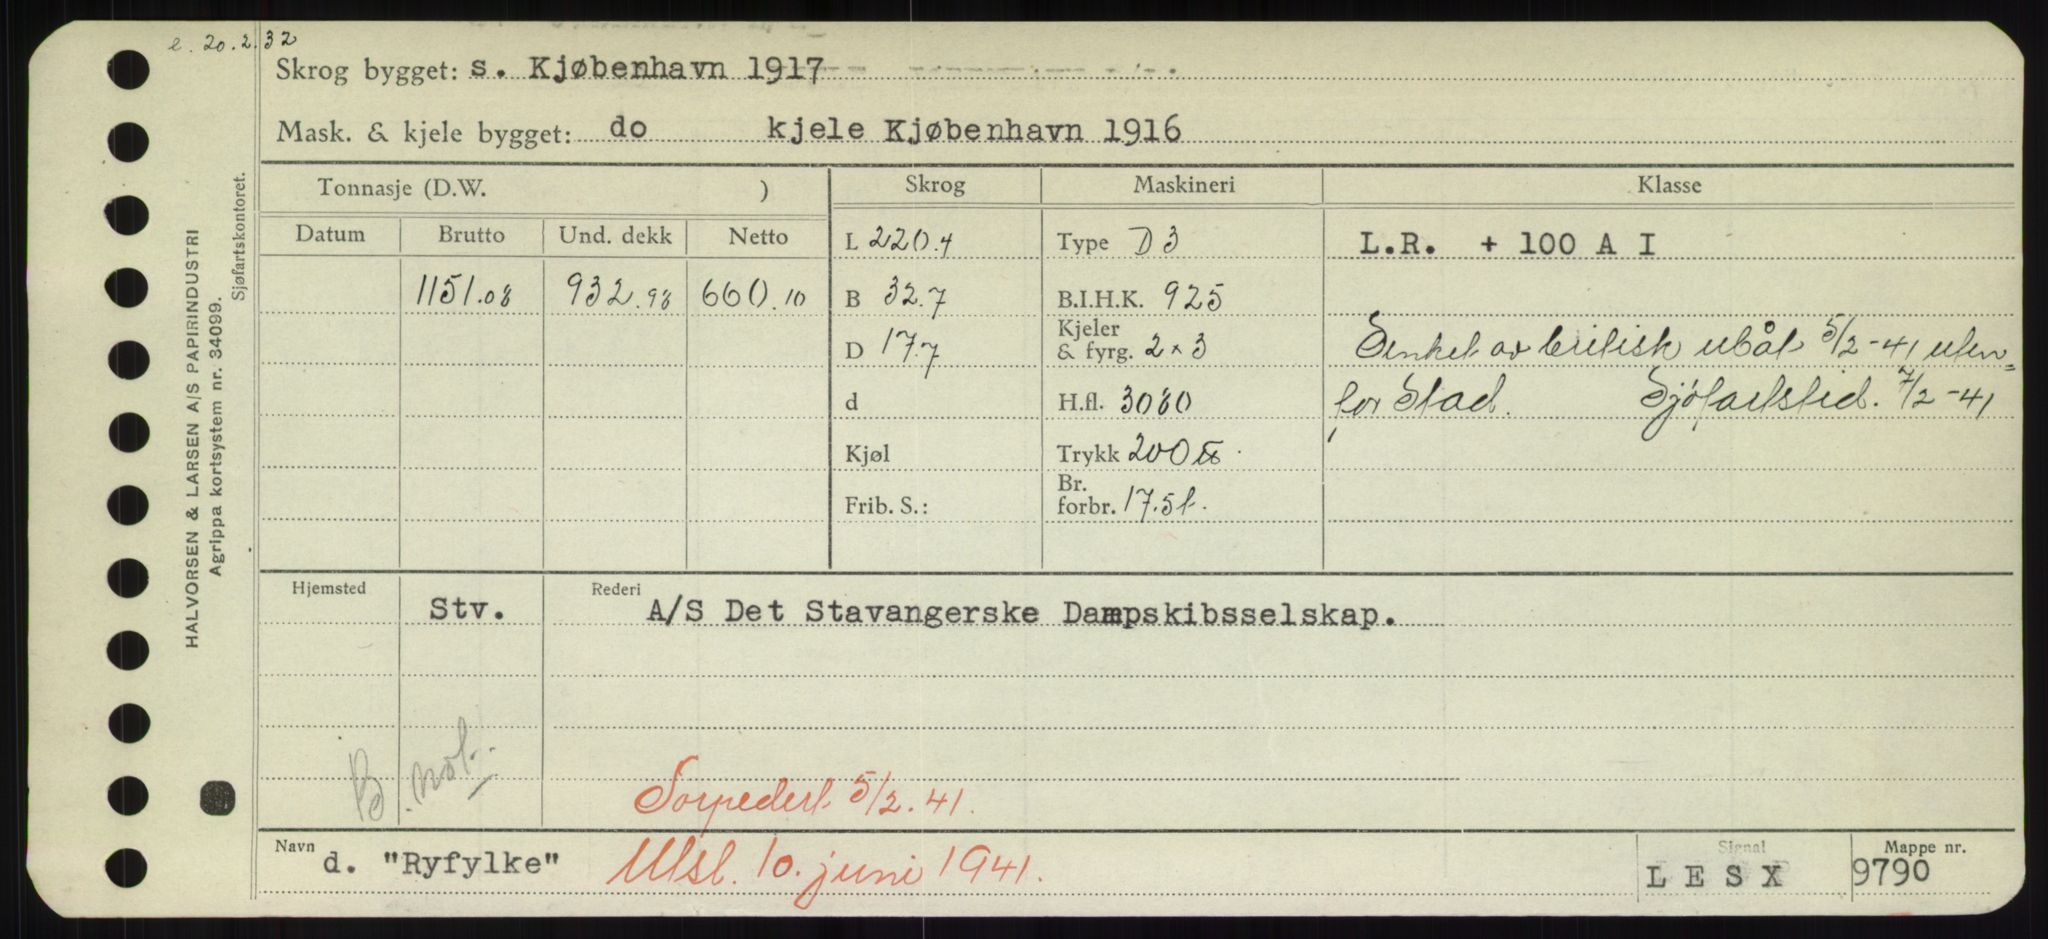 e. 20.2.32
Skrog bygget: s. Kjøbenhavn 1917
Mask. & kjele bygget: do kjele Kjøbenhavn 1916
Tonnasje (D.W. ) Skrog Maskineri Klasse
Datum Brutto Und. dekk Netto L 220.4 Type D 3 L.R. + 100 A I
1151.08 932.98 660.10 B 32.7 B.I.H.K. 925
D 17.7 Kjeler & fyrg. 2 x 3 Senket av britisk ubåt 5/2-41 uten=
d H.fl. 3080 for Stad. Sjöfartstid. 7/2-41
Kjøl Trykk 200 ℔.
Frib. S.: Br. forbr. 17.5 t.
Hjemsted Rederi
Stv. A/S Det Stavangerske Dampskibsselskap.
B. not.
Torpedert 5/2.41.
Navn d. "Ryfylke" Utsl. 10. juni 1941. Signal LESX Mappe nr. 9790
HALVORSEN & LARSEN A/S PAPIRINDUSTRI
Agrippa kortsystem nr. 34099.
Sjøfartskontoret.